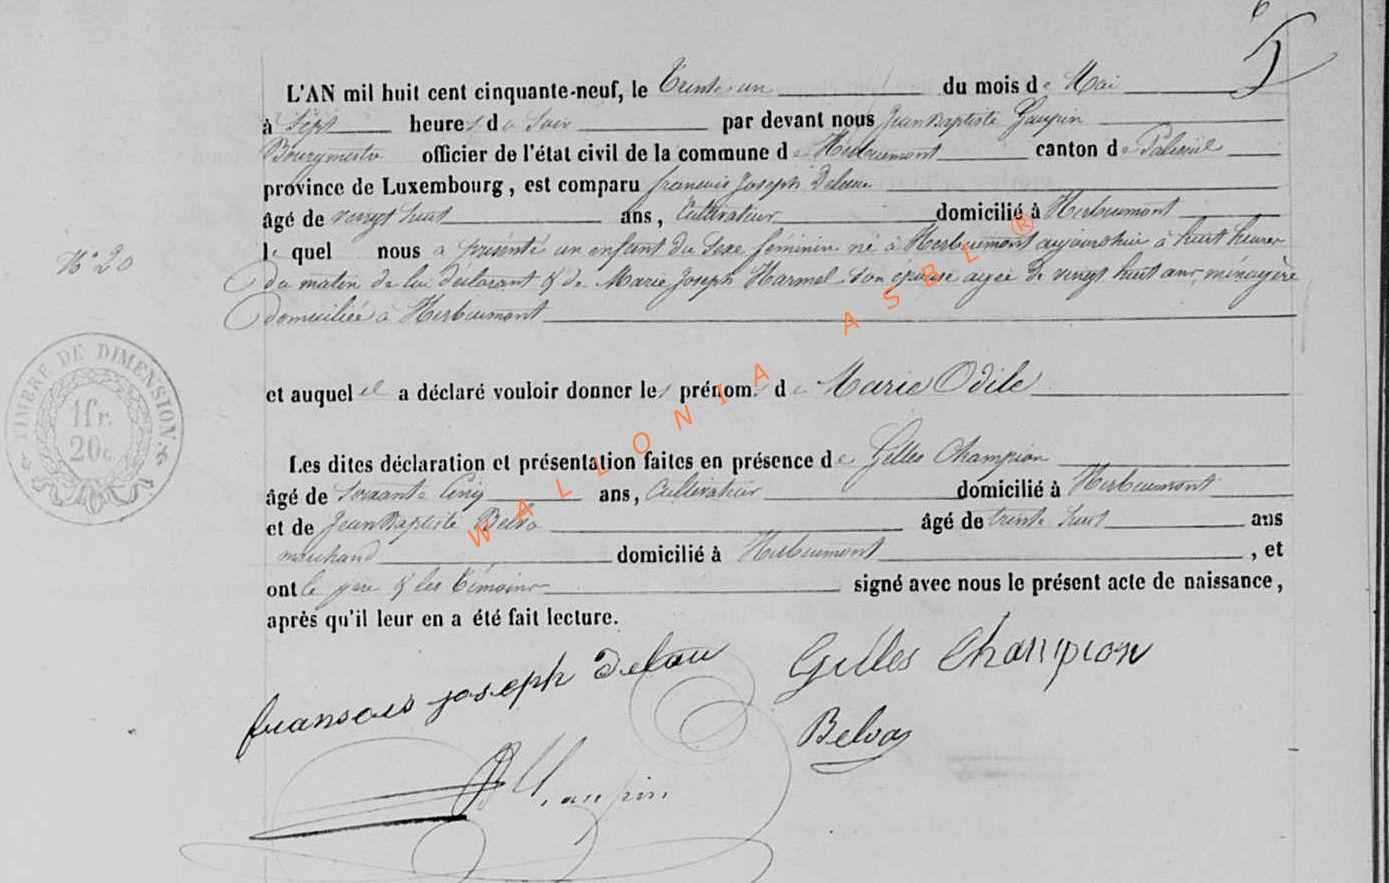 5
L'AN mil huit cent cinquante-neuf, le Trente un du mois de Mai
à Sept heures du Soir par devant nous Jean Baptiste Gaupin
Bourgmestre officier de l'état civil de la commune de Herbeumont canton de Paliseul
province de Luxembourg, est comparu francois Joseph Delau
âgé de vingt huit ans, Cultivateur domicilié à Herbeumont
le quel nous a présenté un enfant du Sexe féminin né à Herbeumont aujourd'hui à huit heures
N° 20
du matin de lui déclarant & de Marie Joseph Harmel Son épouse agée de vingt huit ans, ménagère
domiciliée à Herbeumont
TIMBRE DE DIMENSION.
1 fr.
20c
et auquel il a déclaré vouloir donner les prénoms de Marie Odile
Les dites déclaration et présentation faites en présence de Gilles Champion
âgé de Soixante Cinq ans, Cultivateur domicilié à Herbeumont
et de Jean Baptiste Belva âgé de trente huit ans
marchand domicilié à Herbeumont, et
ont le père & les témoins signé avec nous le présent acte de naissance,
après qu'il leur en a été fait lecture.
fransois joseph Delau Gilles Champion
Belva
JB Gaupin
WALLONIA ASBL ®